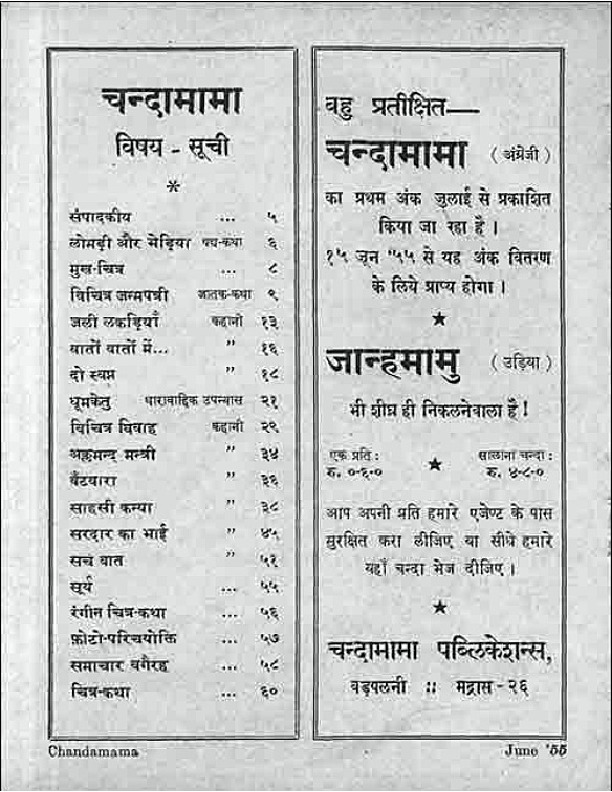 चन्दामामा
विषय - सूची
*
संपादकीय ... ५
लोमड़ी और भेड़िया पद्य-कथा ६
मुख-चित्र ... ८
विचित्र जन्मपत्री जातक-कथा ९
जली लकड़ियाँ कहानी १३
बातों बातों में... ” १६
दो स्वप्न ” १८
धूमकेतु धारावाहिक उपन्यास २१
विचित्र विवाह कहानी २९
अक़्लमन्द मन्त्री ” ३४
बँटवारा ” ३६
साहसी कन्या ” ३८
सरदार का भाई ” ४५
सच बात ” ५१
सूर्य ... ५५
रंगीन चित्र-कथा ... ५६
फ़ोटो-परिचयोक्ति ... ५७
समाचार वग़ैरह ... ५८
चित्र-कथा ... ६०
बहु प्रतीक्षित—
चन्दामामा (अंग्रेजी)
का प्रथम अंक जुलाई से प्रकाशित
किया जा रहा है।
१५ जून '५५ से यह अंक वितरण
के लिये प्राप्य होगा।
★
जान्हमामु (उड़िया)
भी शीघ्र ही निकलनेवाला है!
एक प्रति: सालाना चन्दा:
रु. ०-६-० ★ रु. ४-८-०
आप अपनी प्रति हमारे एजेण्ट के पास
सुरक्षित करा लीजिए या सीधे हमारे
यहाँ चन्दा भेज दीजिए।
★
चन्दामामा पब्लिकेशन्स,
वड़पलनी :: मद्रास-२६
Chandamama June '55